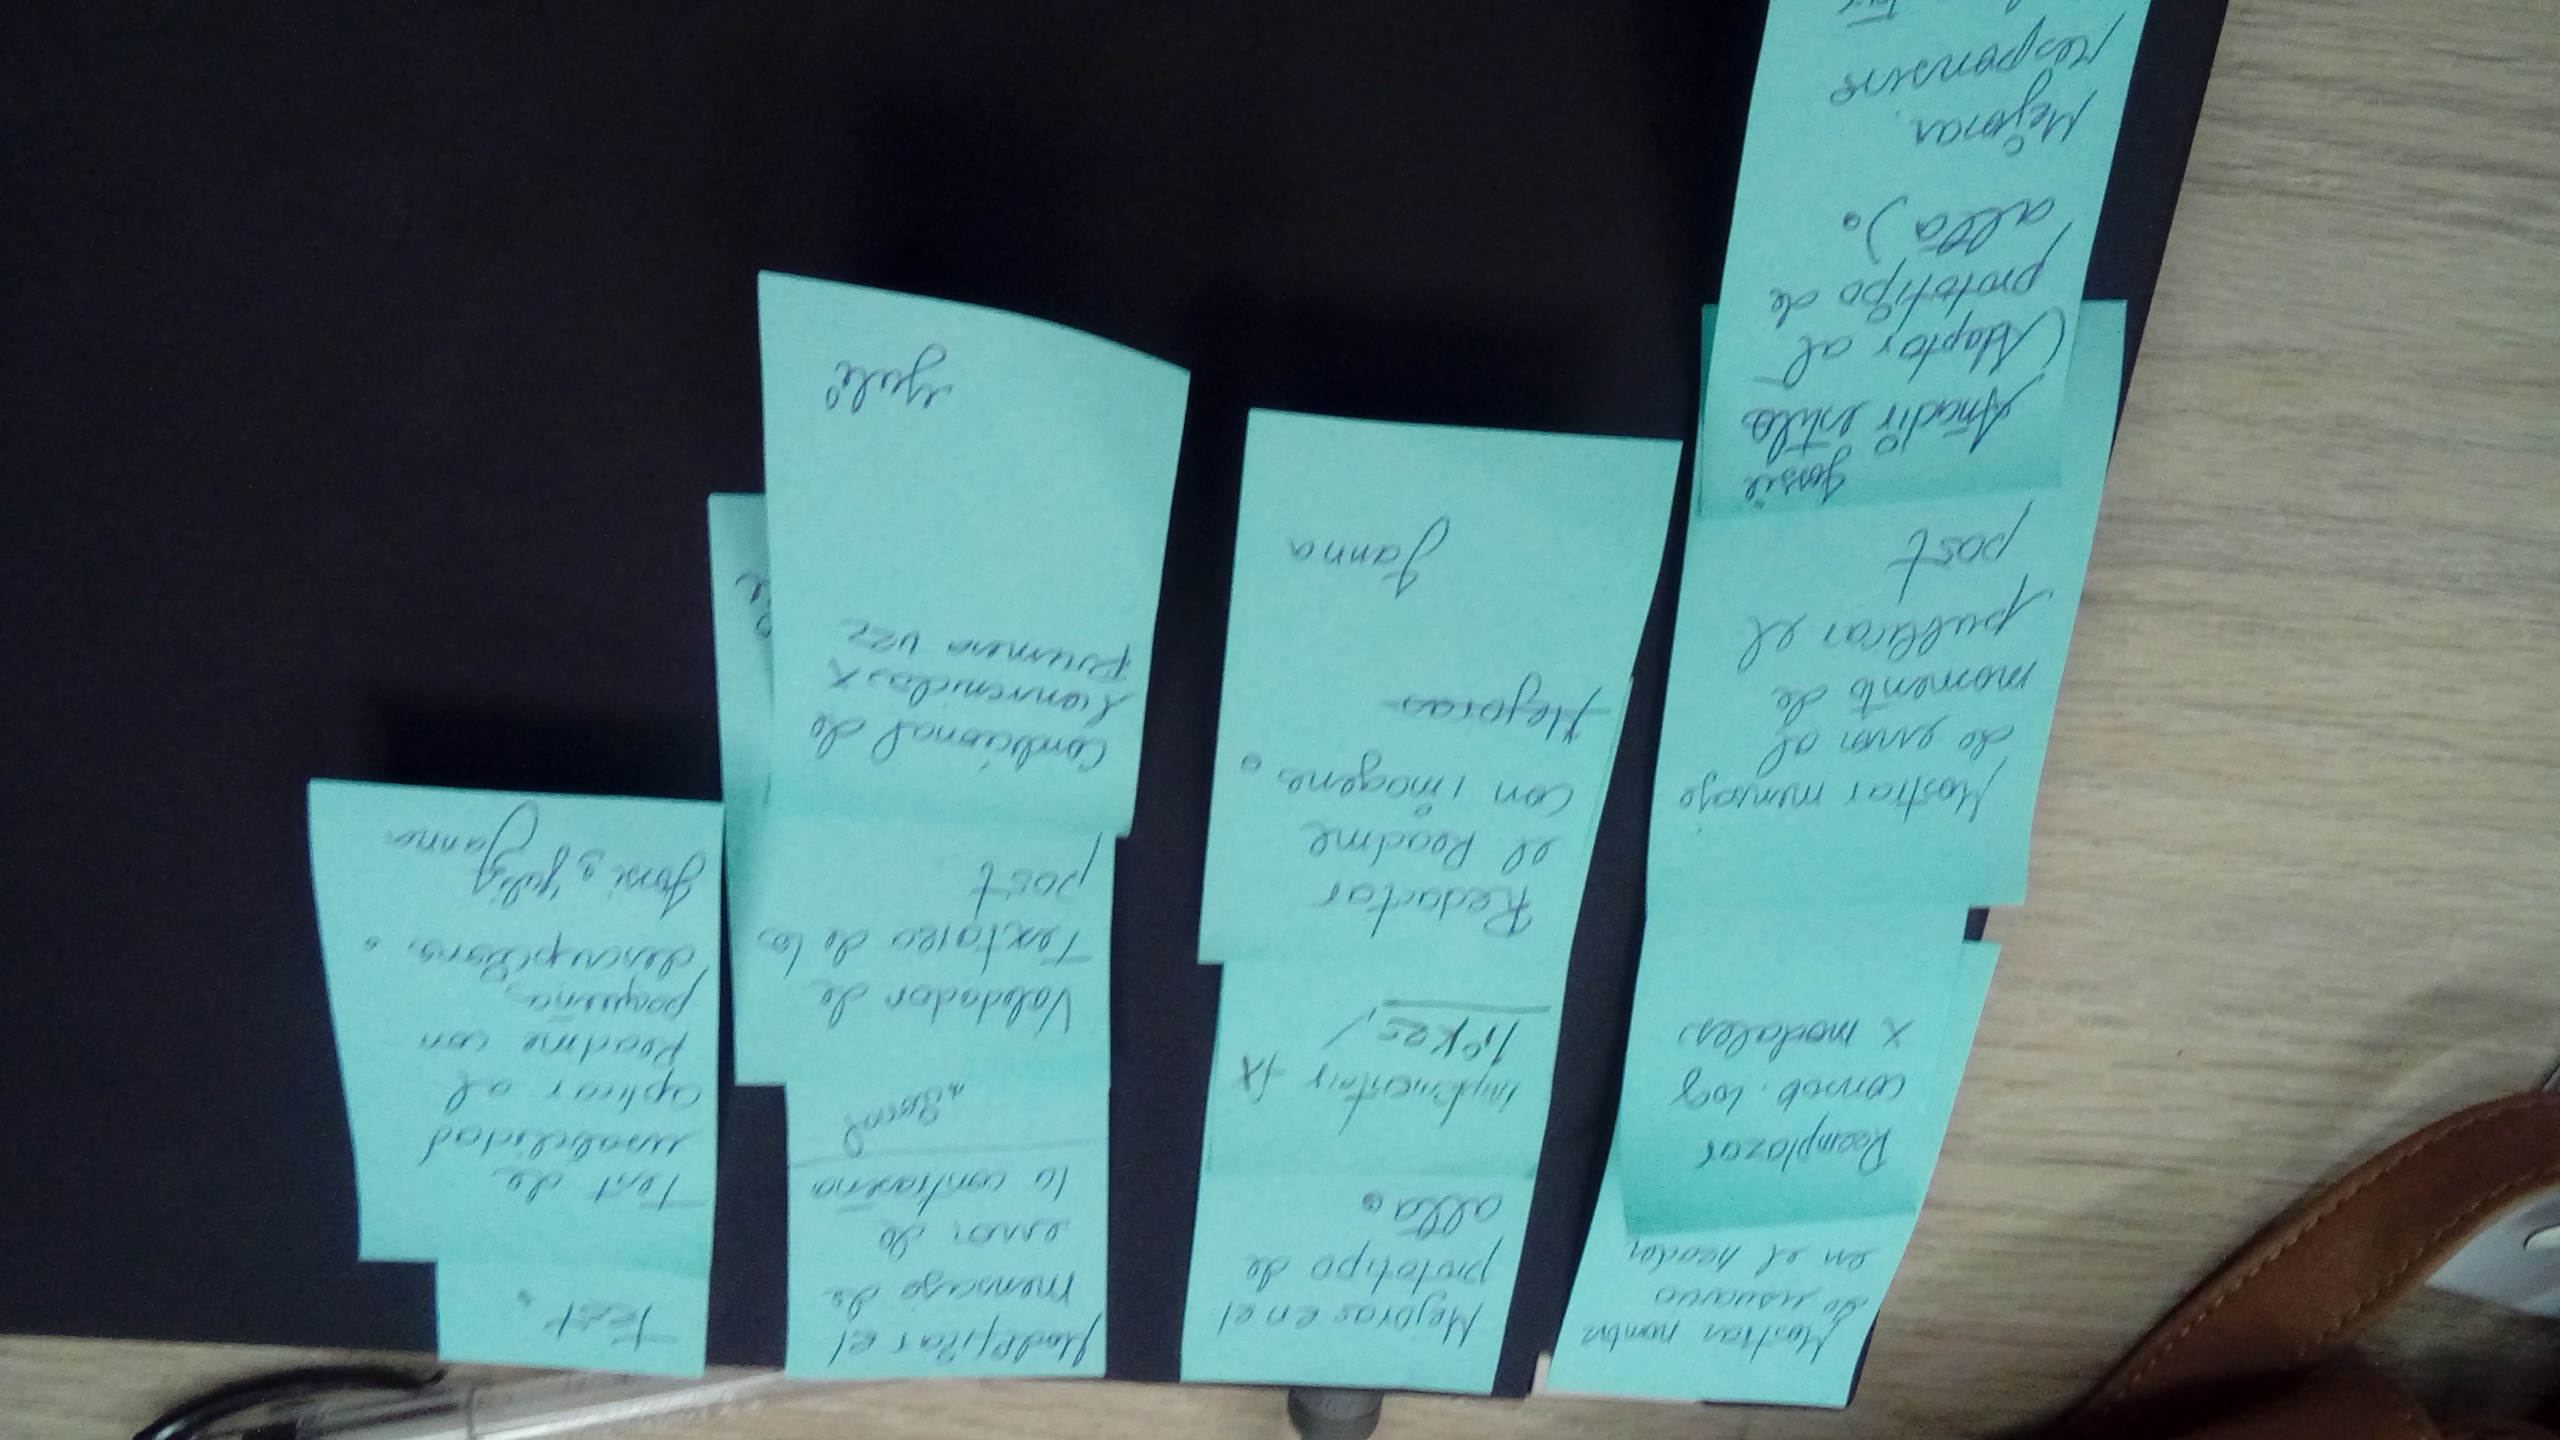 Mostrar nombre
de usuario
en el header
Reemplazar
consol. log
x modales
Mostrar mensaje
de error al
momento de
publicar el
post
Jossie
Añadir estilos
(Adaptar al
prototipo de
alta).
Mejorar
responsive
Mejoras en el
prototipo de
alta.
Implementar fx
likes/
Redactar
el Readme
con imagenes.
Mejoras
Janna
Modificar el
mensaje de
error de
la contraseña
Validador de
Textarea de los
post
Condicional de
bienvenidas x
primera vez
Yuli
Test.
Test de
usabilidad
aplicar al
Readme con
pequeñas
descripciones.
Jossi, Yuli,
Janna